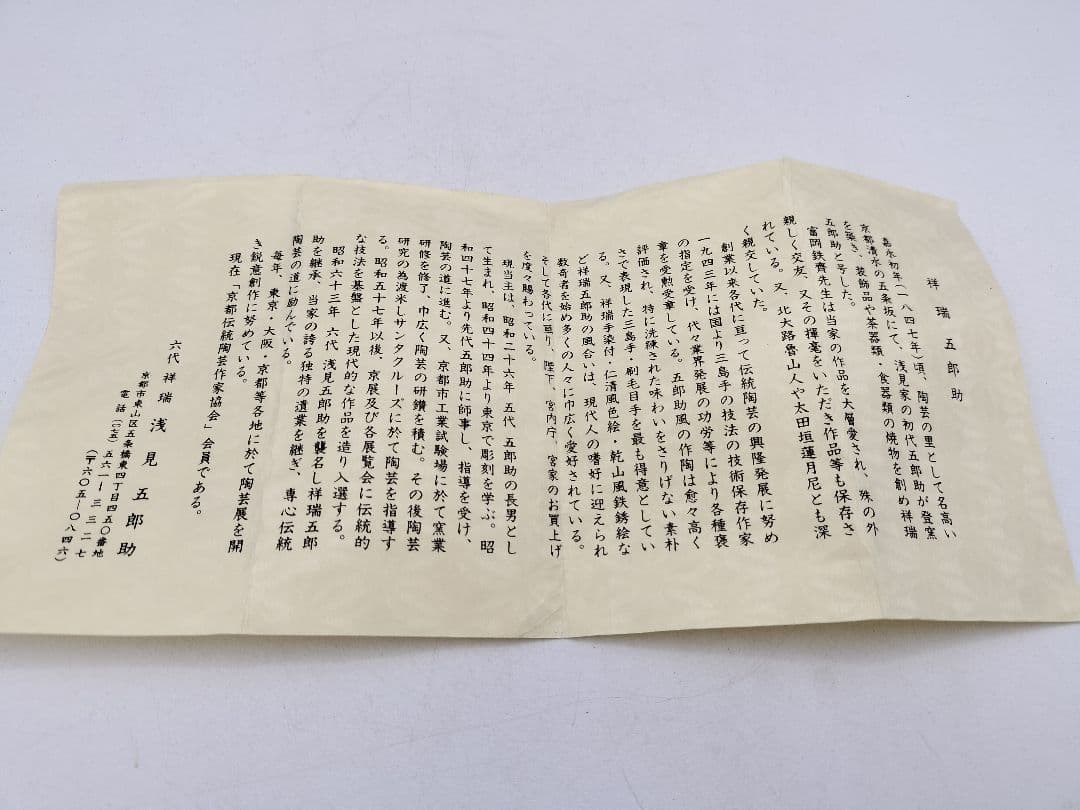 祥瑞五郎助
嘉永初年(一八四七年)頃、陶芸の里として名高い
京都清水の五条坂にて、浅見家の初代五郎助が登窯
を築き、装飾品や茶器類・食器類の焼物を創め祥瑞
五郎助と号した。
富岡鉄斉先生は当家の作品を大層愛され、殊の外
親しく交友、又その揮毫をいただき作品等も保存さ
れている。又、北大路魯山人や太田垣蓮月尼とも深
く親交していた。
創業以来各代に亘って伝統陶芸の興隆発展に努め
一九四三年には国より三島手の技法の技術保存作家
の指定を受け、代々業界発展の功労等により各種褒
章を受勲受章している。五郎助風の作陶は愈々高く
評価され、特に洗練された味わいをさりげない素朴
さで表現した三島手・刷毛目手を最も得意としてい
る。又、祥瑞手染付・仁清風色絵・乾山風銹絵な
ど祥瑞五郎助の風合いは、現代人の嗜好に迎えられ
数奇者を始め多くの人々に巾広く愛好されている。
そして各代に亘り、陛下、宮内庁、宮家のお買上げ
を度々賜わっている。
現当主は、昭和二十六年 五代 五郎助の長男とし
て生まれ、昭和四十四年より東京で彫刻を学ぶ。昭
和四十七年より先代五郎助に師事し、指導を受け、
陶芸の道に進む。又、京都市工業試験場に於て窯業
研修を修了、巾広く陶芸の研鑽を積む。その後陶芸
研究の為渡米しサンタクルーズに於て陶芸を指導す
る。昭和五十七年以後、京展及び各展覧会に伝統的
な技法を基盤とした現代的な作品を造り入選する。
昭和六十三年 六代 浅見五郎助を襲名し祥瑞五郎
助を継承、当家の誇る独特の遺業を継ぎ、専心伝統
陶芸の道に励んでいる。
毎年、東京・大阪・京都等各地に於て陶芸展を開
き鋭意創作に努めている。
現在「京都伝統陶芸作家協会」会員である。
六代 祥瑞 浅見五郎助
京都市東山区五条橋東四丁目四五〇番地
電話(〇七五)五六一ー三三二七
(〒六〇五ー〇八四六)